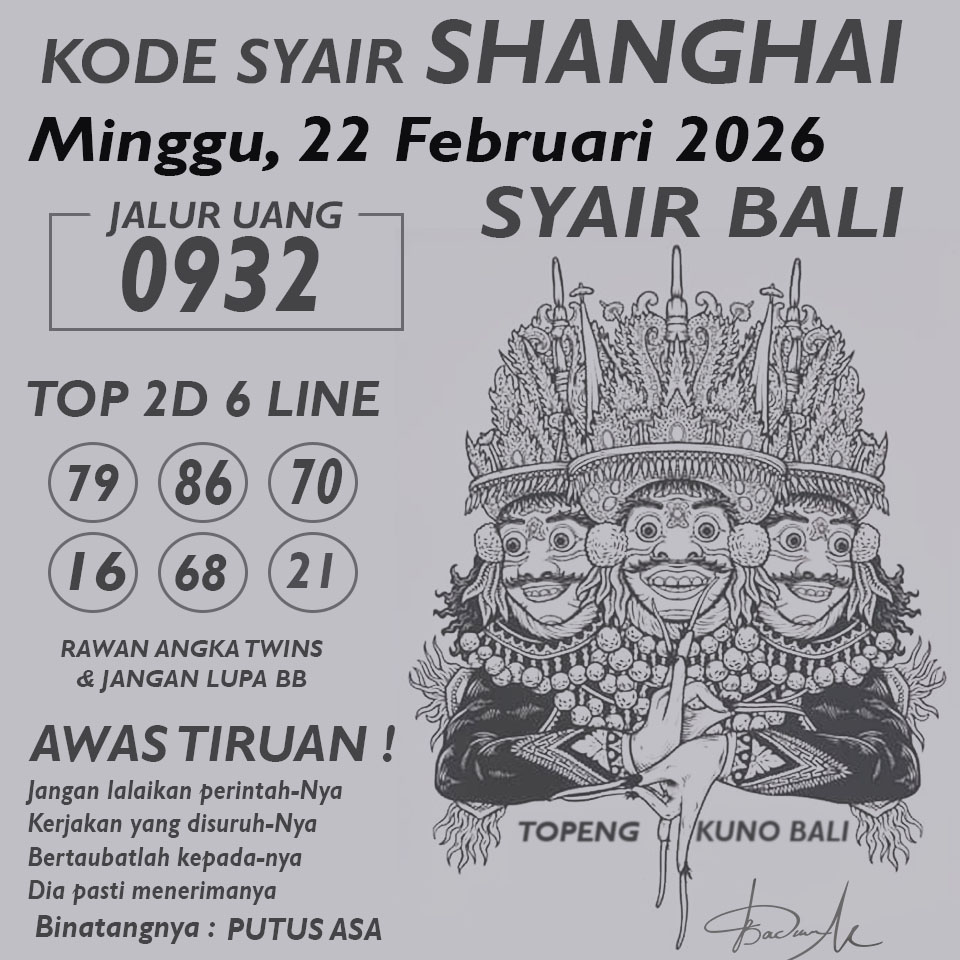 KODE SYAIR SHANGHAI
Minggu, 22 Februari 2026
SYAIR BALI
JALUR UANG
0932
TOP 2D 6 LINE
79 86 70
16 68 21
RAWAN ANGKA TWINS
& JANGAN LUPA BB
AWAS TIRUAN !
Jangan lalaikan perintah-Nya
Kerjakan yang disuruh-Nya
Bertaubatlah kepada-nya
Dia pasti menerimanya
Binatangnya : PUTUS ASA
TOPENG KUNO BALI